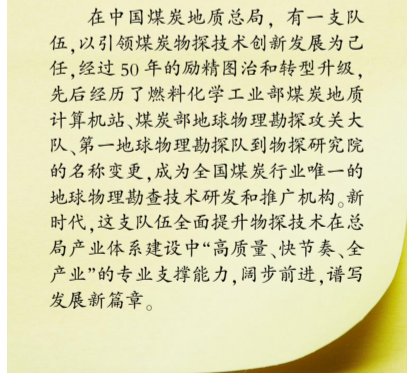 在中国煤炭地质总局，有一支队
伍，以引领煤炭物探技术创新发展为己
任，经过50年的励精图治和转型升级，
先后经历了燃料化学工业部煤炭地质
计算机站、煤炭部地球物理勘探攻关大
队、第一地球物理勘探队到物探研究院
的名称变更，成为全国煤炭行业唯一的
地球物理勘查技术研发和推广机构。新
时代，这支队伍全面提升物探技术在总
局产业体系建设中“高质量、快节奏、全
产业”的专业支撑能力，阔步前进，谱写
发展新篇章。